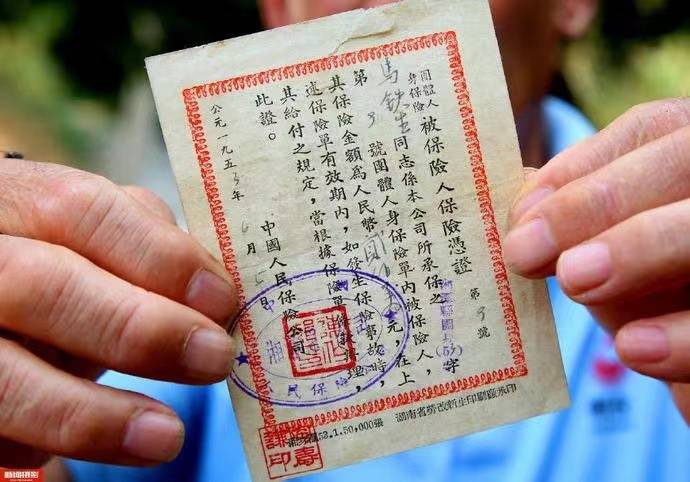 團體人身保險
被保險人保險憑證
(53)字
第3號
馬鉄生同志係本公司所承保之
第3號團體人身保險單內被保險人,
其保險金額爲人民幣元,在上
述保險單有效期內,如發生保險事故時,
其給付之規定,當根據保險單理
此證。
中國人民保險公司
公元一九五3年6月5日
民保險
53.1.50,000張
湖南省勞改新生印刷廠承印
印